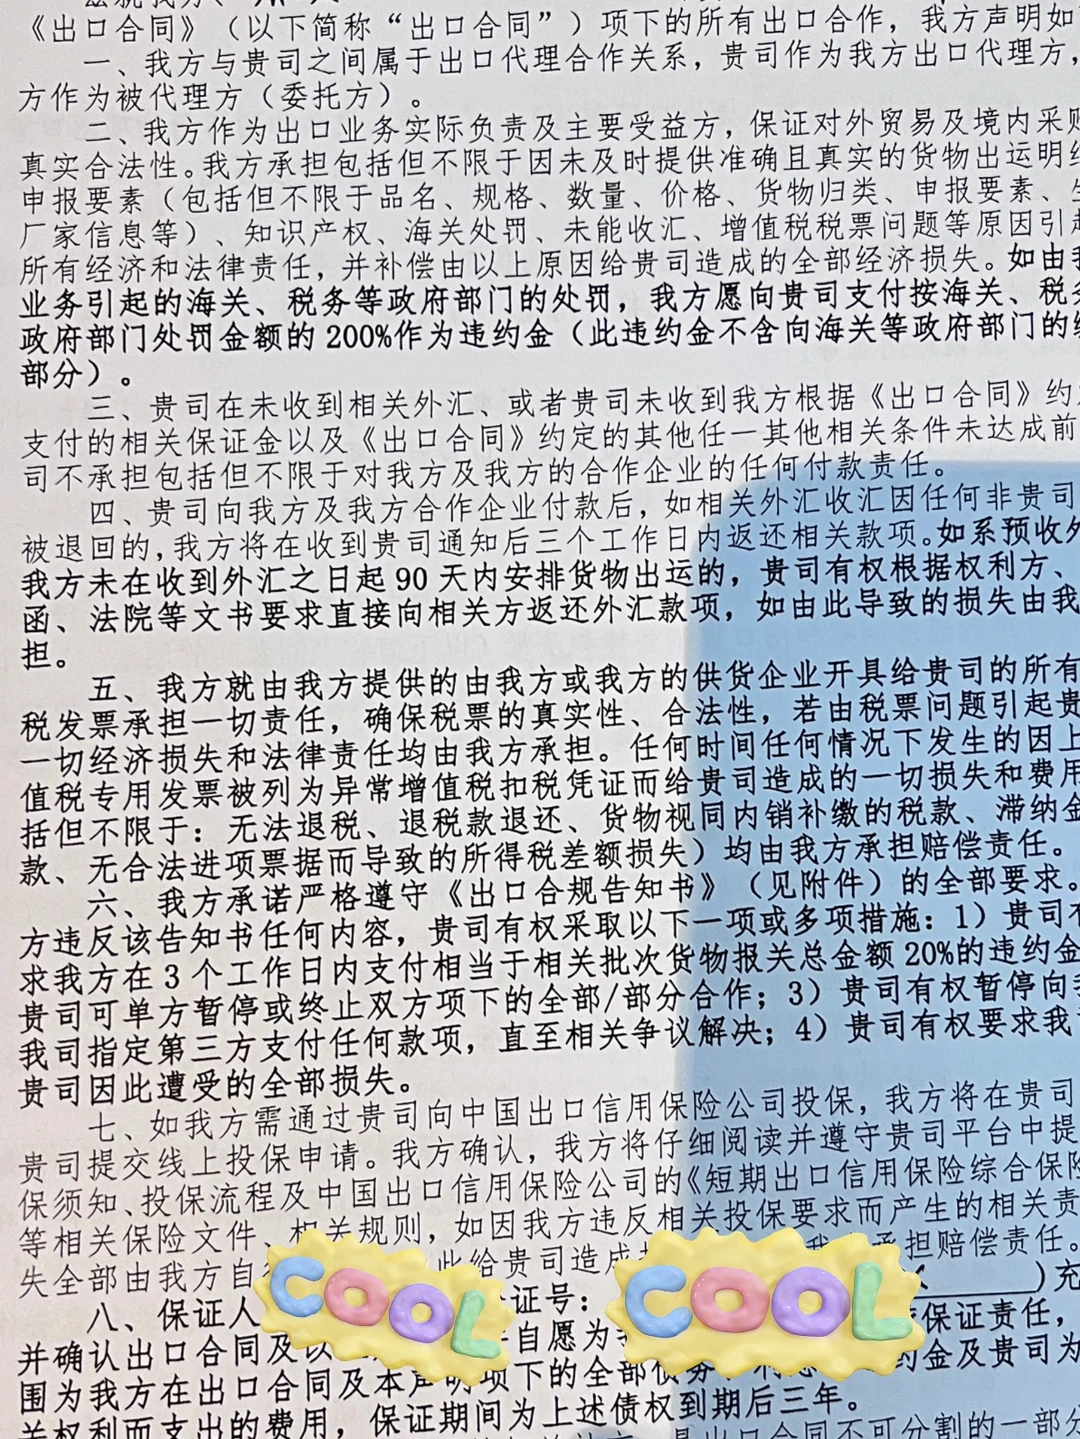 《出口合同》（以下简称“出口合同”）项下的所有出口合作，我方声明如
一、我方与贵司之间属于出口代理合作关系，贵司作为我方出口代理方，
方作为被代理方（委托方）。
二、我方作为出口业务实际负责及主要受益方，保证对外贸易及境内采购
真实合法性。我方承担包括但不限于因未及时提供准确且真实的货物出运明
申报要素（包括但不限于品名、规格、数量、价格、货物归类、申报要素、
厂家信息等）、知识产权、海关处罚、未能收汇、增值税税票问题等原因引起
所有经济和法律责任，并补偿由以上原因给贵司造成的全部经济损失。如由我
业务引起的海关、税务等政府部门的处罚，我方愿向贵司支付按海关、税务
政府部门处罚金额的 200%作为违约金（此违约金不含向海关等政府部门的
部分）。
三、贵司在未收到相关外汇、或者贵司未收到我方根据《出口合同》约
支付的相关保证金以及《出口合同》约定的其他任一其他相关条件未达成前
司不承担包括但不限于对我方及我方的合作企业的任何付款责任。
四、贵司向我方及我方合作企业付款后，如相关外汇收汇因任何非贵司
被退回的，我方将在收到贵司通知后三个工作日内返还相关款项。如系预收外
我方未在收到外汇之日起 90 天内安排货物出运的，贵司有权根据权利方、
函、法院等文书要求直接向相关方返还外汇款项，如由此导致的损失由我
担。
五、我方就由我方提供的由我方或我方的供货企业开具给贵司的所有
税发票承担一切责任，确保税票的真实性、合法性，若由税票问题引起贵
一切经济损失和法律责任均由我方承担。任何时间任何情况下发生的因上
值税专用发票被列为异常增值税扣税凭证而给贵司造成的一切损失和费用
括但不限于：无法退税、退税款退还、货物视同内销补缴的税款、滞纳金
款、无合法进项票据而导致的所得税差额损失）均由我方承担赔偿责任。
六、我方承诺严格遵守《出口合规告知书》（见附件）的全部要求。
方违反该告知书任何内容，贵司有权采取以下一项或多项措施：1）贵司有
求我方在 3 个工作日内支付相当于相关批次货物报关总金额 20%的违约金
贵司可单方暂停或终止双方项下的全部/部分合作；3）贵司有权暂停向我
我司指定第三方支付任何款项，直至相关争议解决；4）贵司有权要求我
贵司因此遭受的全部损失。
七、如我方需通过贵司向中国出口信用保险公司投保，我方将在贵司
贵司提交线上投保申请。我方确认，我方将仔细阅读并遵守贵司平台中提
保须知、投保流程及中国出口信用保险公司的《短期出口信用保险综合保险
等相关保险文件、相关规则，如因我方违反相关投保要求而产生的相关责
失全部由我方自 此给贵司造成 我 承担赔偿责任。
八、保证人 COOL 证号： COOL )充
自愿为 保证责任，
并确认出口合同及以 项下的全部债务 约金及贵司为
围为我方在出口合同及本声明 保证期间为上述债权到期后三年。
关权利而支出的费用，
是出口合同不可分割的一部分